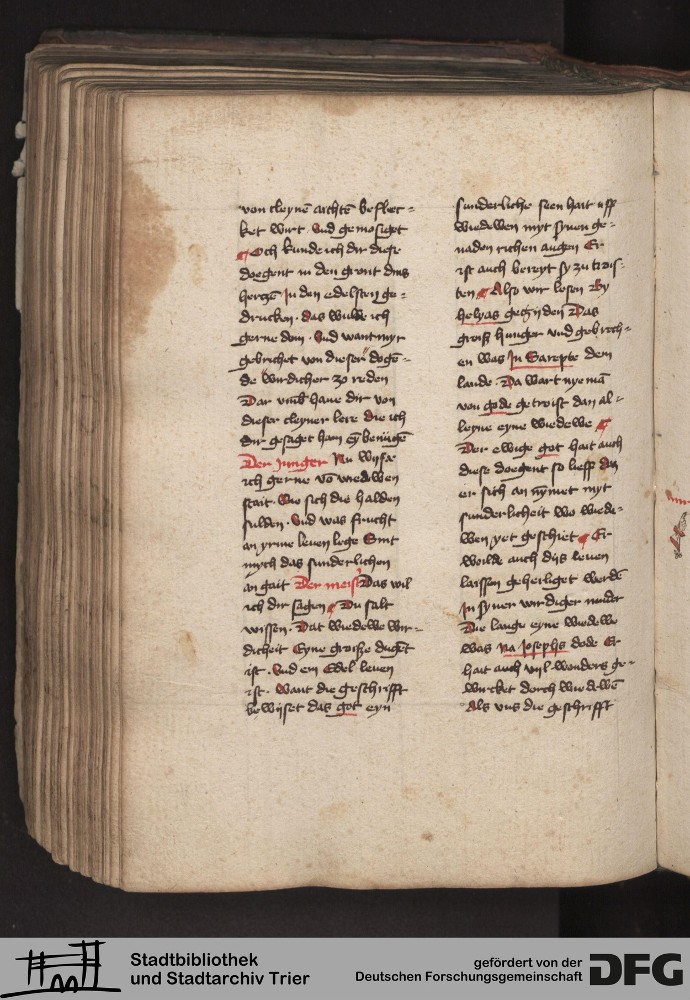 von cleynē achtē beflec=
ket wirt. Vnd gemosiget
Och kunde ich dir diese
doegent in den gront dins
hertzē In den edelsten ge=
drucken. das wulde ich
gerne doin. Vnd want myr
gebrichet von dieser doge=
de wirdicher zo reden
Dar vmb haue dir von
dieser cleyner lere die ich
dir gesaget han eȳ benugē
Der Junger Nu wyste
ich gerne vō wiedwen
stait. Wie sich die halden
sulden. Vnd was frucht
an yrme leuen lege Sint
mych das sunderlichen
an gait Der meist Das wil
ich dir sagen Du salt
wissen. Dat wiedewe wir=
dicheit Eyne groisze duget
ist. Vnd ein Edel leuen
ist. Want die geschrifft
bewijset das got eyn
sunderliche sien hait uff
wiedewen myt synen ge=
naden richen augen Er
ist auch bereyt sy zu trois=
ten Also wir lesen By
helyas getzijden Das
groisz hunger vnd gebrech=
en was In Sarepte dem
lande. Da wart nyemā
von gode getroist dan al=
leyne eyne wiedewe
Der ewige got hait auch
diese doegent so lieff dan
er sich an nymet myt
sunderlicheit wo wiede=
wen yet geschiet Er
woilde auch dijs leuen
laissen geheiliget werdē
In syner wirdiger muder
Die lange eyne wiedewe
was Na Josephs dode Er
hait auch vil wonders ge=
wircket dorch wiedwē
Als vns die geschrifft
Stadtbibliothek
und Stadtarchiv Trier
gefördert von der
Deutschen Forschungsgemeinschaft
DFG